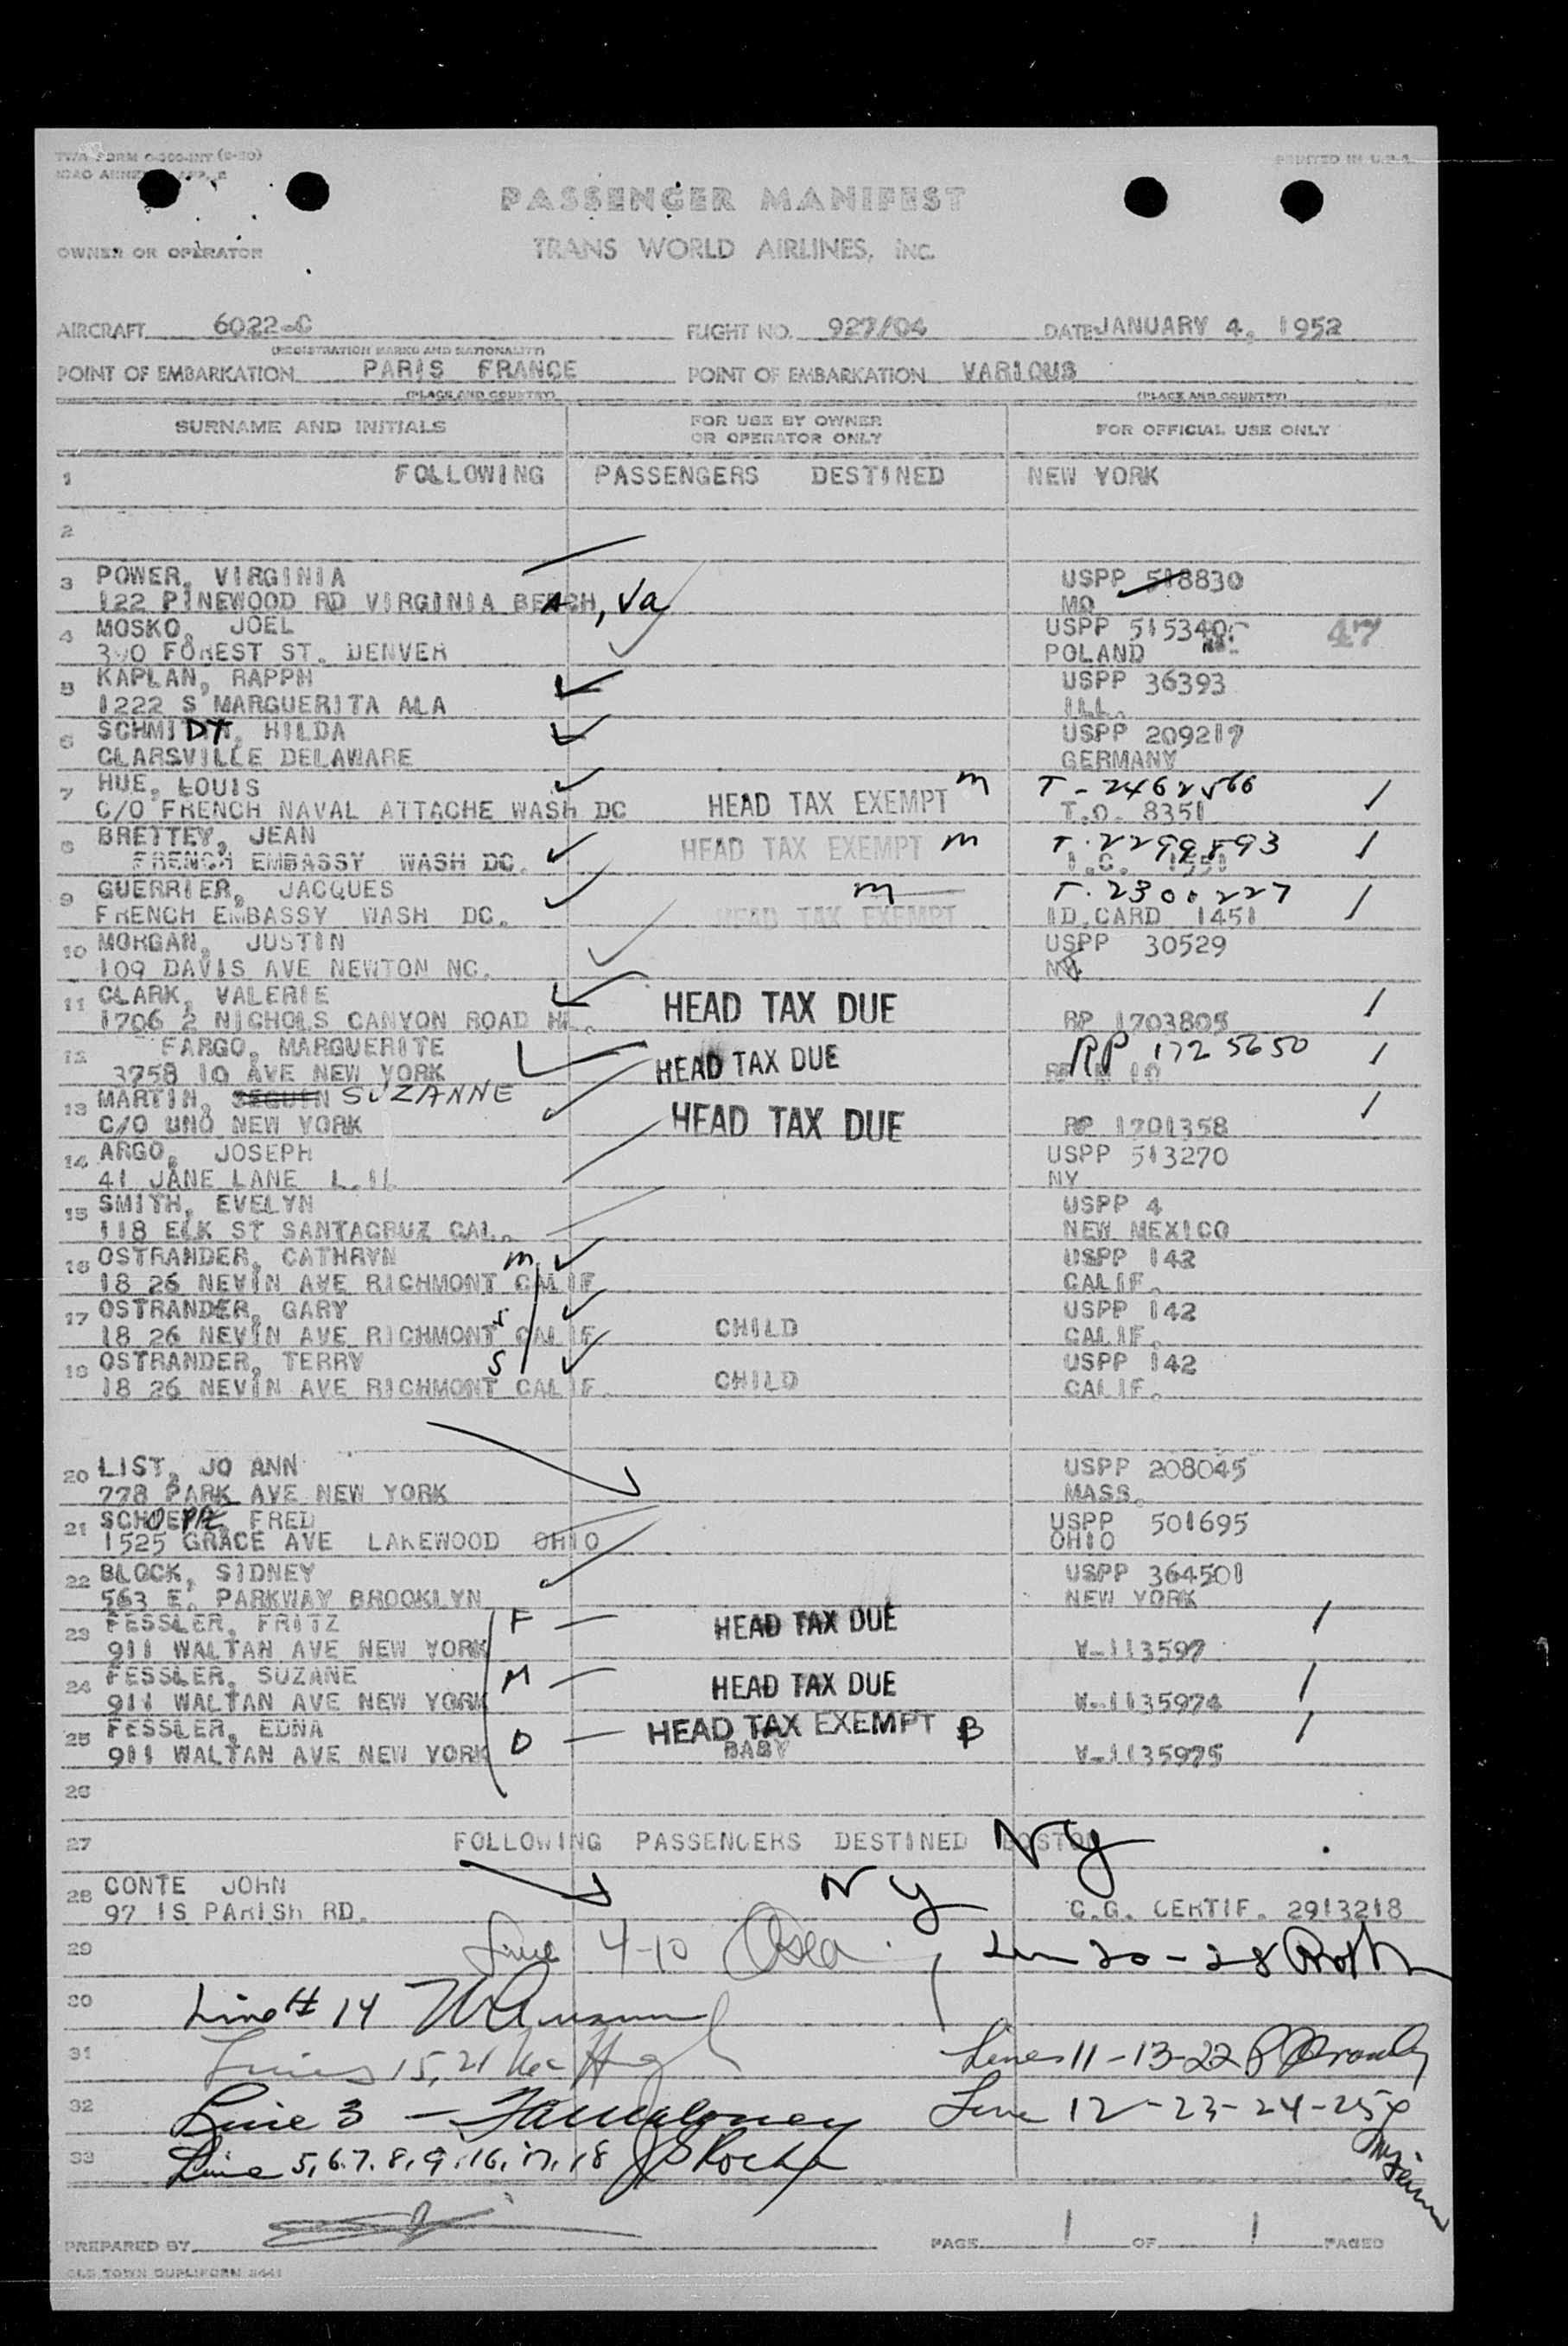 TWA FORM
PRINTED IN U.S.A.
PASSENGER MANIFEST
OWNER OR OPERATOR
TRANS WORLD AIRLINES, INC.
AIRCRAFT 6022-C FLIGHT NO. 927/04 DATE JANUARY 4, 1952
(REGISTRATION MARKS AND NATIONALITY)
POINT OF EMBARKATION PARIS FRANCE POINT OF EMBARKATION VARIOUS
(PLACE AND COUNTRY) (PLACE AND COUNTRY)
SURNAME AND INITIALS FOR USE BY OWNER OR OPERATOR ONLY FOR OFFICIAL USE ONLY
1 FOLLOWING PASSENGERS DESTINED NEW YORK
2
3 POWER, VIRGINIA USPP 518830
122 PINEWOOD RD VIRGINIA BEACH, Va MO
4 MOSKO, JOEL USPP 515340 47
FOREST ST. DENVER POLAND
5 KAPLAN, RAPPH USPP 36393
1222 S MARGUERITA ALA ILL.
6 SCHMIDT, HILDA USPP 209217
CLARSVILLE DELAWARE GERMANY
7 HUE, LOUIS m T-2462566 1
C/O FRENCH NAVAL ATTACHE WASH DC HEAD TAX EXEMPT T.O. 8351
8 BRETTEY, JEAN HEAD TAX EXEMPT m T.2299893 1
FRENCH EMBASSY WASH DC. I.C. 1551
9 GUERRIER, JACQUES m T.2300227 1
FRENCH EMBASSY WASH DC. HEAD TAX EXEMPT ID.CARD 1451
10 MORGAN, JUSTIN USPP 30529
109 DAVIS AVE NEWTON NC.
11 CLARK, VALERIE HEAD TAX DUE 1
1706 2 NICHOLS CANYON ROAD RP 1703805
12 FARGO, MARGUERITE HEAD TAX DUE RP 1725650 1
3758 10 AVE NEW YORK
13 MARTIN, SEGUIN SUZANNE HEAD TAX DUE 1
C/O UNO NEW YORK RP 1701358
14 ARGO, JOSEPH USPP 513270
41 JANE LANE L.I. NY
15 SMITH, EVELYN USPP 4
118 ELK ST SANTACRUZ CAL. NEW MEXICO
16 OSTRANDER, CATHRYN m USPP 142
18 26 NEVIN AVE RICHMONT CALIF CALIF.
17 OSTRANDER, GARY s USPP 142
18 26 NEVIN AVE RICHMONT CALIF CHILD CALIF.
18 OSTRANDER, TERRY S USPP 142
18 26 NEVIN AVE RICHMONT CALIF. CHILD CALIF.
20 LIST, JO ANN USPP 208045
778 PARK AVE NEW YORK MASS.
21 FRED USPP 501695
1525 GRACE AVE LAKEWOOD OHIO OHIO
22 BLOCK, SIDNEY USPP 364501
563 E. PARKWAY BROOKLYN NEW YORK
23 FESSLER, FRITZ F HEAD TAX DUE 1
911 WALTAN AVE NEW YORK V-113597
24 FESSLER, SUZANE M HEAD TAX DUE 1
911 WALTAN AVE NEW YORK V-1135974
25 FESSLER, EDNA D HEAD TAX EXEMPT B 1
911 WALTAN AVE NEW YORK BABY V-1135975
26
27 FOLLOWING PASSENGERS DESTINED BOSTON NY
28 CONTE JOHN NY
97 IS PARISH RD. C.G. CERTIF. 2913218
29 Line 4-10 20-28 Roth
30 Line # 14
31 Lines 15, 21 Lines 11-13-22
32 Line 3 - Line 12-23-24-25
33 Line 5,6.7.8,9.16,17,18 Roche
PREPARED BY PAGE 1 OF 1 PAGES